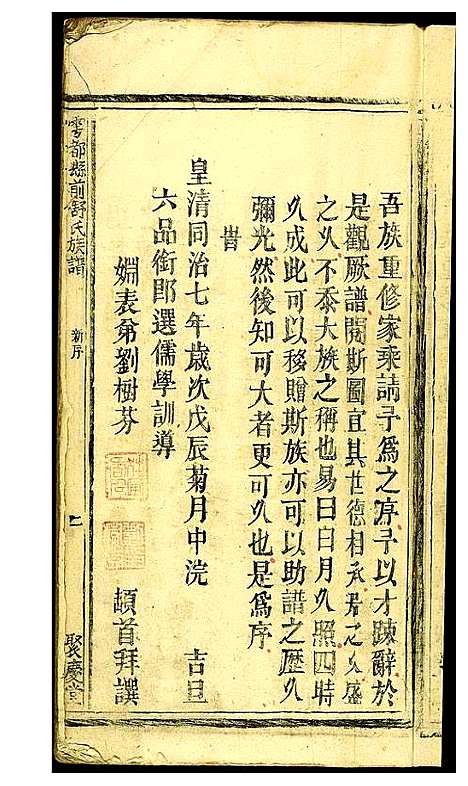 吾族重修家乘請予爲之序予以才踈辭於
是觀厥譜閱斯圖宜其世德相承若之久盛
之久不忝大族之稱也易曰日月久照四時
久成此可以移贈斯族亦可以助譜之歷久
彌光然後知可大者更可久也是爲序
旹
皇清同治七年歲次戊辰菊月中浣 吉旦
六品銜郎選儒學訓導
姻表弟劉樹芬 頓首拜譔
雩都縣前舒氏族譜 新序 聚慶堂